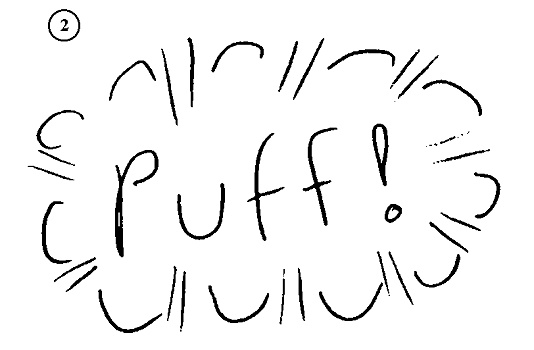 2
Puff!